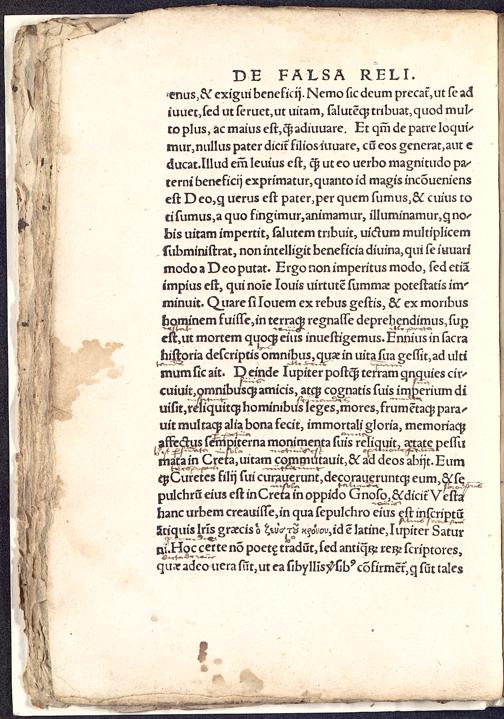 DE FALSA RELI.
enus, & exigui beneficij. Nemo sic deum precat̃, ut se ad
iuuet, sed ut seruet, ut uitam, salutẽq; tribuat, quod mul-
to plus, ac maius est, q̃ adiuuare. Et qm̃ de patre loqui-
mur, nullus pater dicit̃ filios iuuare, cũ eos generat, aut e
ducat. Illud em̃ leuius est, q̃ ut eo uerbo magnitudo pa-
terni beneficij exprimatur, quanto id magis incõueniens
est Deo, q uerus est pater, per quem sumus, & cuius to
ti sumus, a quo fingimur, animamur, illuminamur, q no-
bis uitam impertit, salutem tribuit, uictum multiplicem
subministrat, non intelligit beneficia diuina, qui se iuuari
modo a Deo putat. Ergo non imperitus modo, sed etiã
impius est, qui noĩe Iouis uirtutẽ summæ potestatis im-
minuit. Quare si Iouem ex rebus gestis, & ex moribus
hominem fuisse, in terraq; regnasse deprehendimus, sup
est, ut mortem quoq; eius inuestigemus. Ennius in sacra
historia descriptis omnibus, quæ in uita sua gessit, ad ulti
mum sic ait. Deinde Iupiter postq̃ terram qnquies cir-
cuiuit, omnibusq; amicis, atq; cognatis suis imperium di
uisit, reliquitq; hominibus leges, mores, frumẽtaq; para-
uit multaq; alia bona fecit, immortali gloria, memoriaq;
affectus sempiterna monimenta suis reliquit, ætate pessu
mata in Creta, uitam commutauit, & ad deos abijt. Eum
q; Curetes filij sui curauerunt, decoraueruntq; eum, & se
pulchrũ eius est in Creta in oppido Gnoso, & dicit̃ Vesta
hanc urbem creauisse, in qua sepulchro eius est inscriptũ
ãtiquis lr̃is græcis ὁ ζεὺς τοῦ κρόνου, id ẽ latine, Iupiter Satur
ni. Hoc certe nõ poetę tradũt, sed antiq̃ꝝ reꝝ scriptores,
quæ adeo uera sũt, ut ea sibyllis ꝟsibꝰ cõfirmẽt̃, q sũt tales